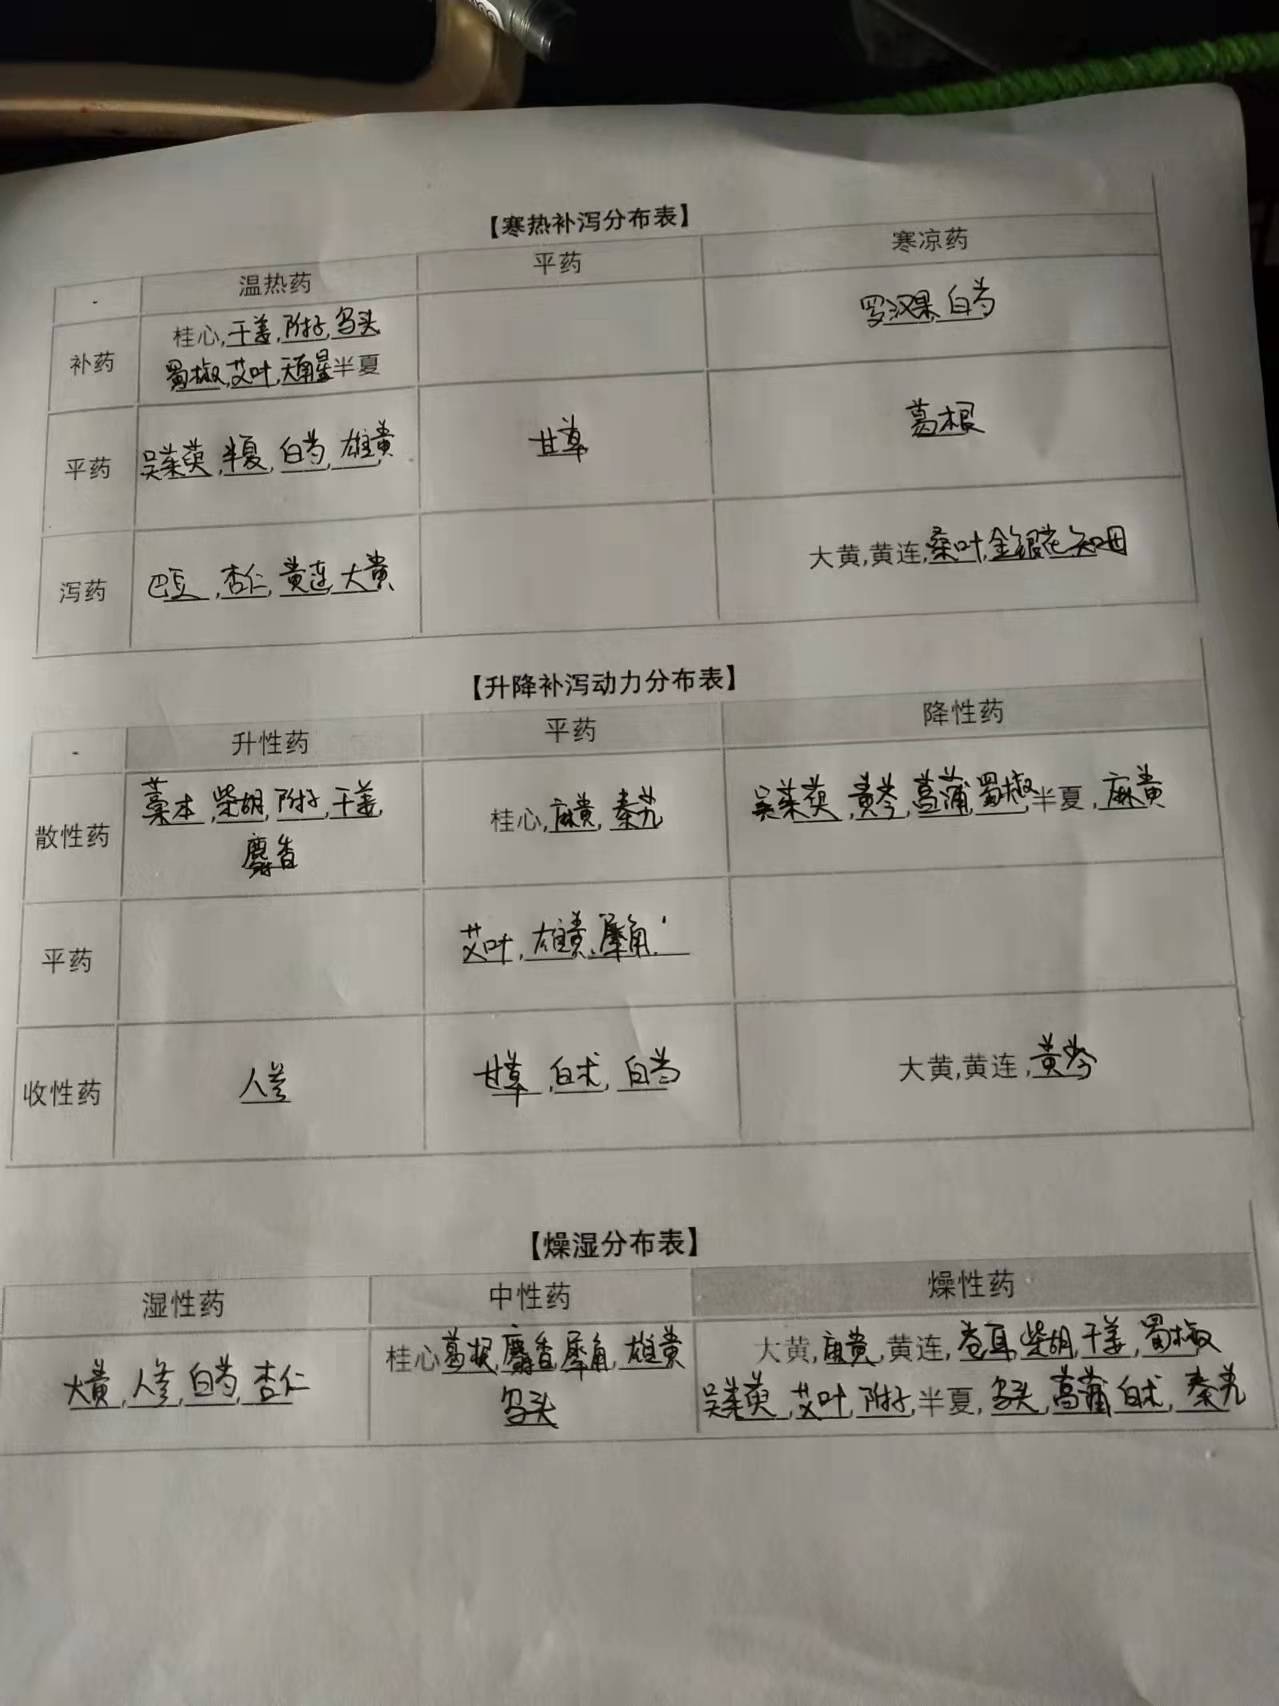 【寒热补泻分布表】
- 温热药 平药 寒凉药
补药 桂心,干姜,附子,乌头 罗汉果,白芍
蜀椒,艾叶,天南星半夏
平药 吴茱萸,半夏,白芍,雄黄 甘草 葛根
泻药 巴豆,杏仁,黄连,大黄 大黄,黄连,桑叶,金银花,知母
【升降补泻动力分布表】
- 升性药 平药 降性药
散性药 藁本,柴胡,附子,干姜, 桂心,麻黄,秦艽 吴茱萸,黄芩,菖蒲,蜀椒半夏,麻黄
麝香
平药 艾叶,雄黄,犀角.
收性药 人参 甘草,白术,白芍 大黄,黄连,黄芩
【燥湿分布表】
湿性药 中性药 燥性药
大黄,人参,白芍,杏仁 桂心葛根,麝香,犀角,雄黄 大黄,麻黄,黄连,苍耳,柴胡,干姜,蜀椒
乌头 吴茱萸,艾叶,附子,半夏,乌头,菖蒲,白术,秦艽